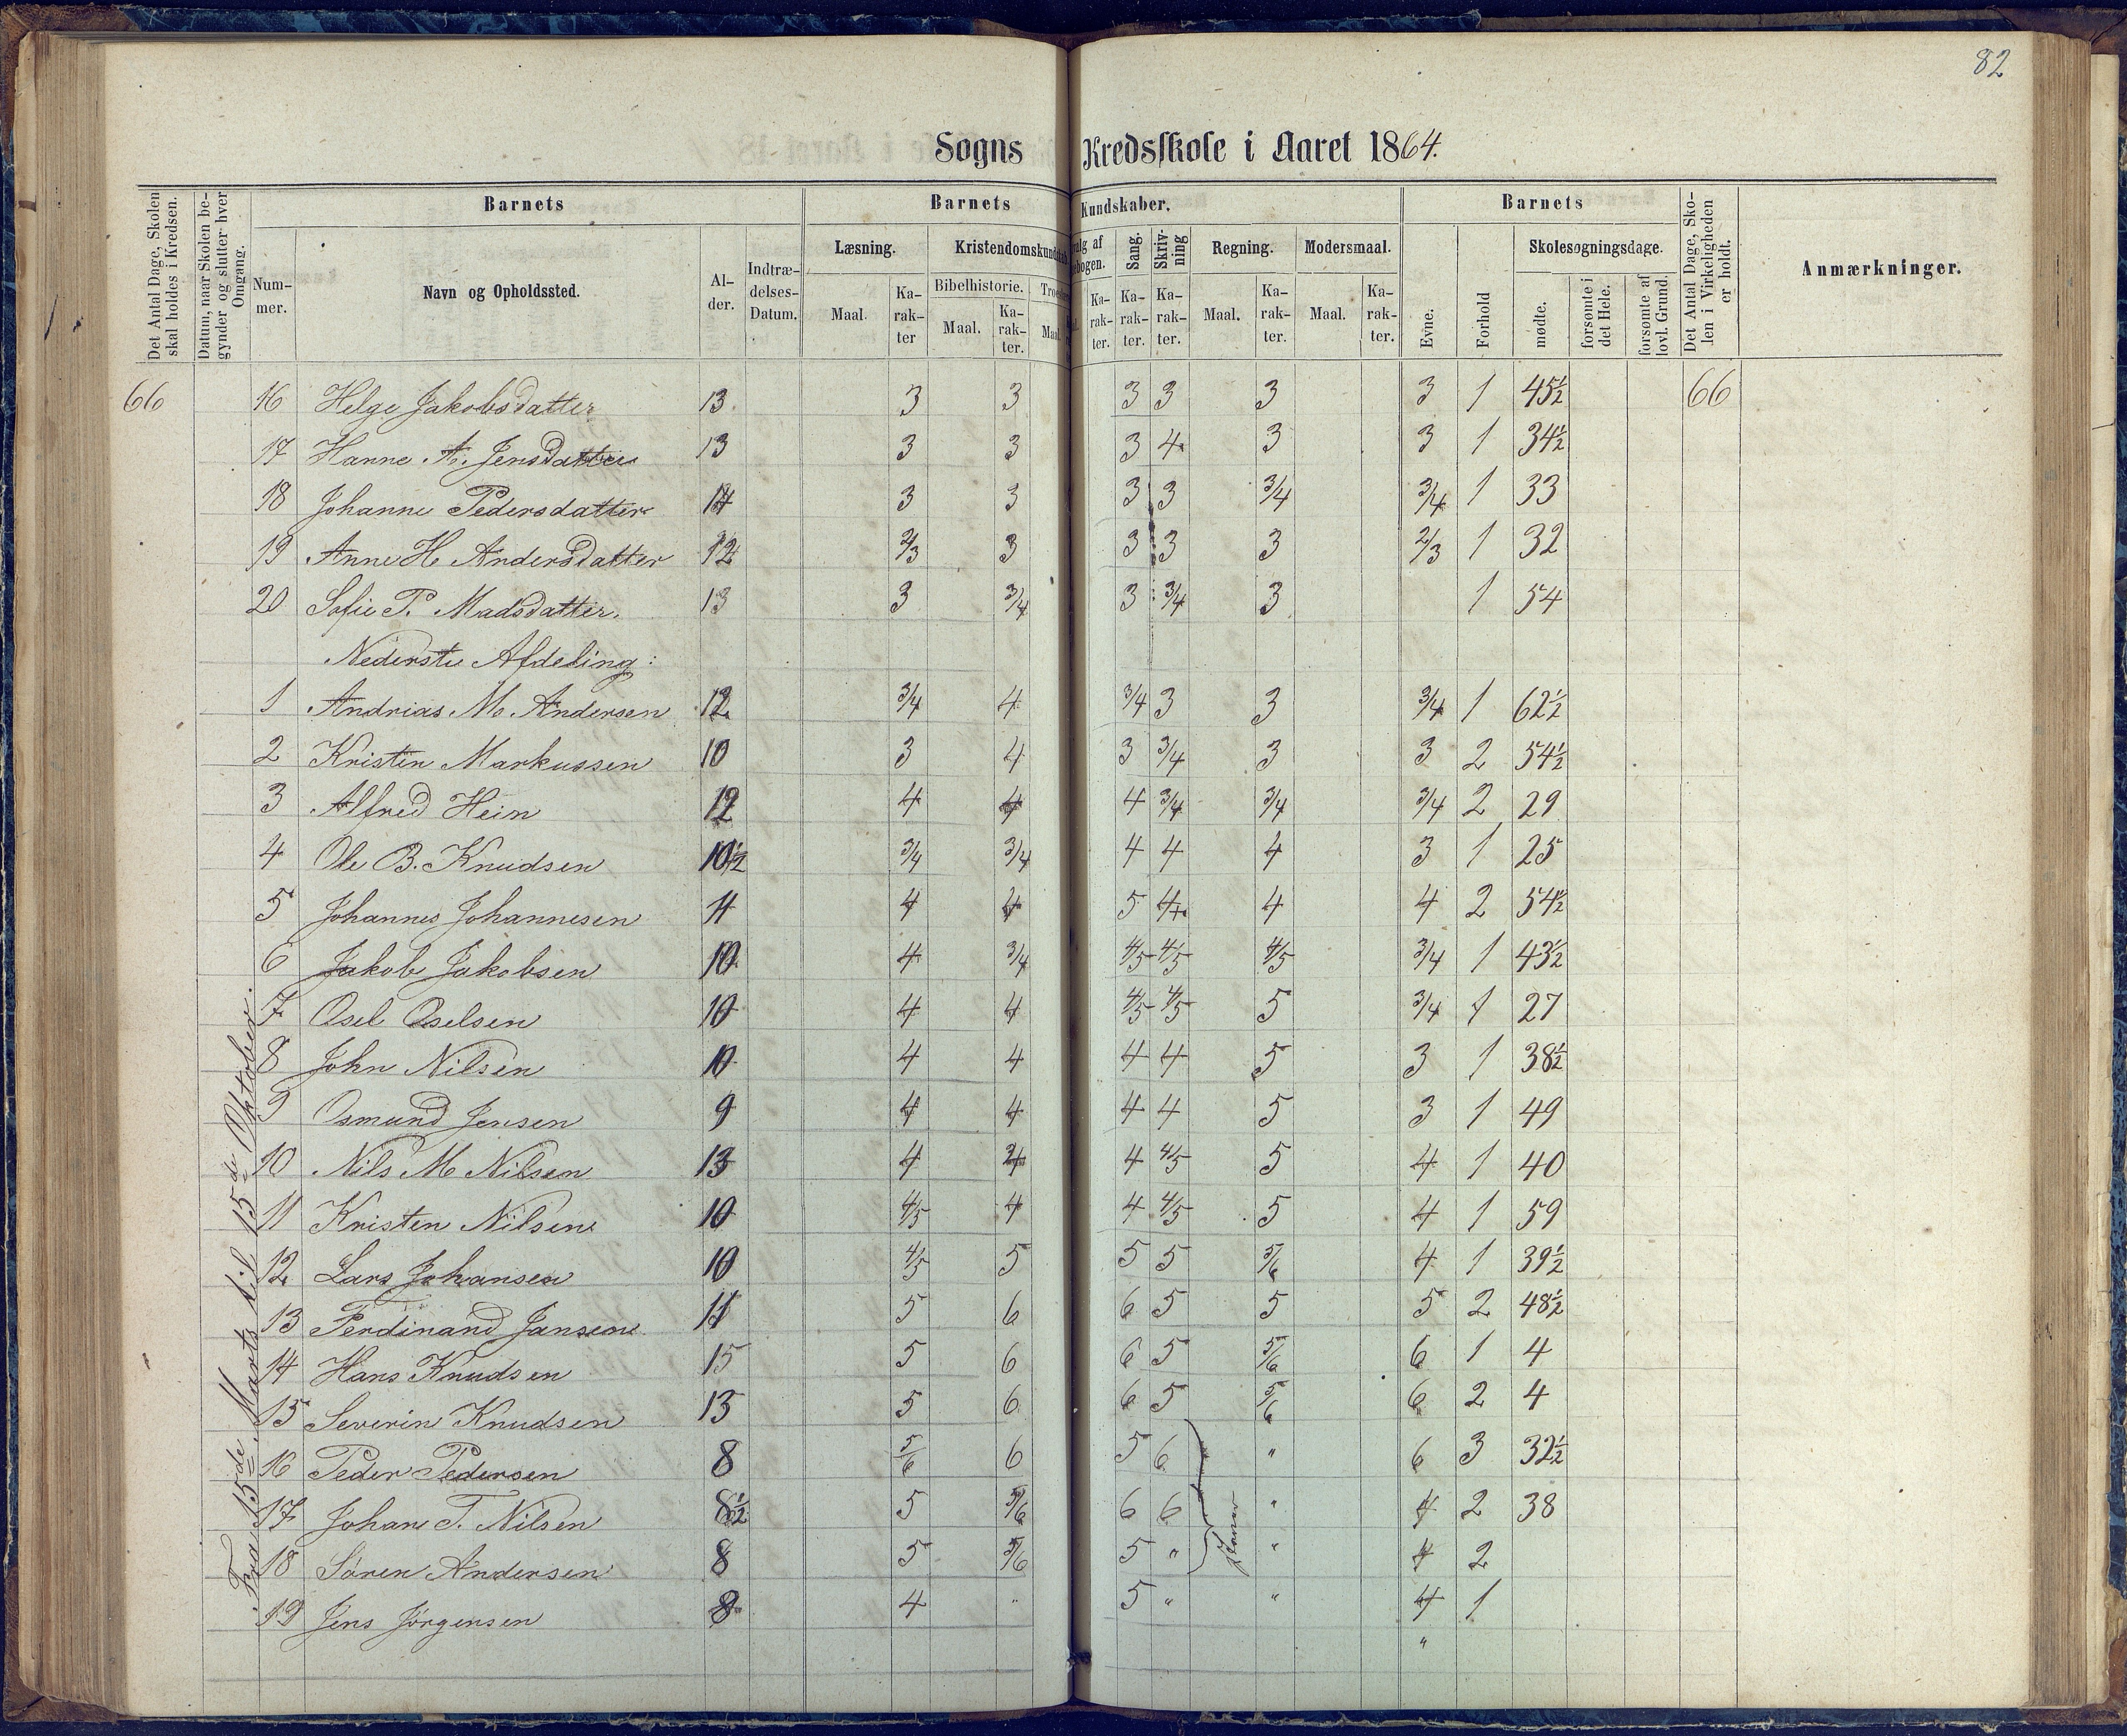 82
Sogns Kredsskole i Aaret 1864.
Det Antal Dage, Skolen skal holdes i Kredsen.
Datum, naar Skolen begynder og slutter hver Omgang.
Barnets
Nummer.
Navn og Opholdssted.
Alder.
Indtrædelses-Datum.
Barnets Kundskaber.
Læsning.
Maal.
Karakter
Kristendomskundskab
Bibelhistorie.
Maal.
Karakter.
Maal.
Karakter.
Sang.
Karakter.
Skrivning
Karakter.
Regning.
Maal.
Karakter.
Modersmaal.
Maal.
Karakter.
Barnets
Evne.
Forhold
Skolesøgningsdage.
mødte.
forsømte i det Hele.
forsømte af lovl. Grund.
Det Antal Dage, Skolen i Virkeligheden er holdt.
Anmærkninger.
66 16 Helge Jakobsdatter 13 3 3 3 3 3 3 1 45½ 66
17 Hanne A. Jensdatter 13 3 3 3 4 3 3 1 34½
18 Johanne Pedersdatter 14 3 3 3 3 3/4 3/4 1 33
19 Anne H. Andersdatter 12 2/3 3 3 3 3 2/3 1 32
20 Sofie P. Madsdatter. 13 3 3/4 3 3/4 3 1 54
Nederste Afdeling:
1 Andrias M. Andersen 12 3/4 4 3/4 3 3 3/4 1 62½
2 Kristen Markussen 10 3 4 3 3/4 3 3 2 54½
3 Alfred Hein 12 4 4 4 3/4 3/4 3/4 2 29
4 Ole B. Knudsen 10½ 3/4 3/4 4 4 4 3 1 25
5 Johannes Johannesen 11 4 4 5 4 4 4 2 54½
6 Jakob Jakobsen 10 4 3/4 4/5 4/5 4/5 3/4 1 43½
7 Osel Oselsen 10 4 4 4/5 4/5 5 3/4 1 27
8 John Nilsen 10 4 4 4 4 5 3 1 38½
9 Osmund Jensen 9 4 4 4 4 5 3 1 49
10 Nils M Nilsen 13 4 4 4 4/5 5 4 1 40
11 Kristen Nilsen 10 4/5 4 4 4/5 5 4 1 59
12 Lars Johansen 10 4/5 5 5 5 5/6 4 1 39½
13 Ferdinand Jansen 11 5 6 6 5 5 5 2 48½
14 Hans Knudsen 15 5 6 6 5 5/6 6 1 4
15 Severin Knudsen 13 5 6 6 5 5/6 6 2 4
16 Peder Pedersen 8 5/6 6 5 6 " 6 3 32½
17 Johan T. Nilsen 8½ 5 5/6 6 6 " 4 2 38
18 Sören Andersen 8 5 5/6 5 " " 4 2
19 Jens Jörgensen 8 4 " 5 " " 4 1
"
Fra 15de Marts til 15de Oktober.